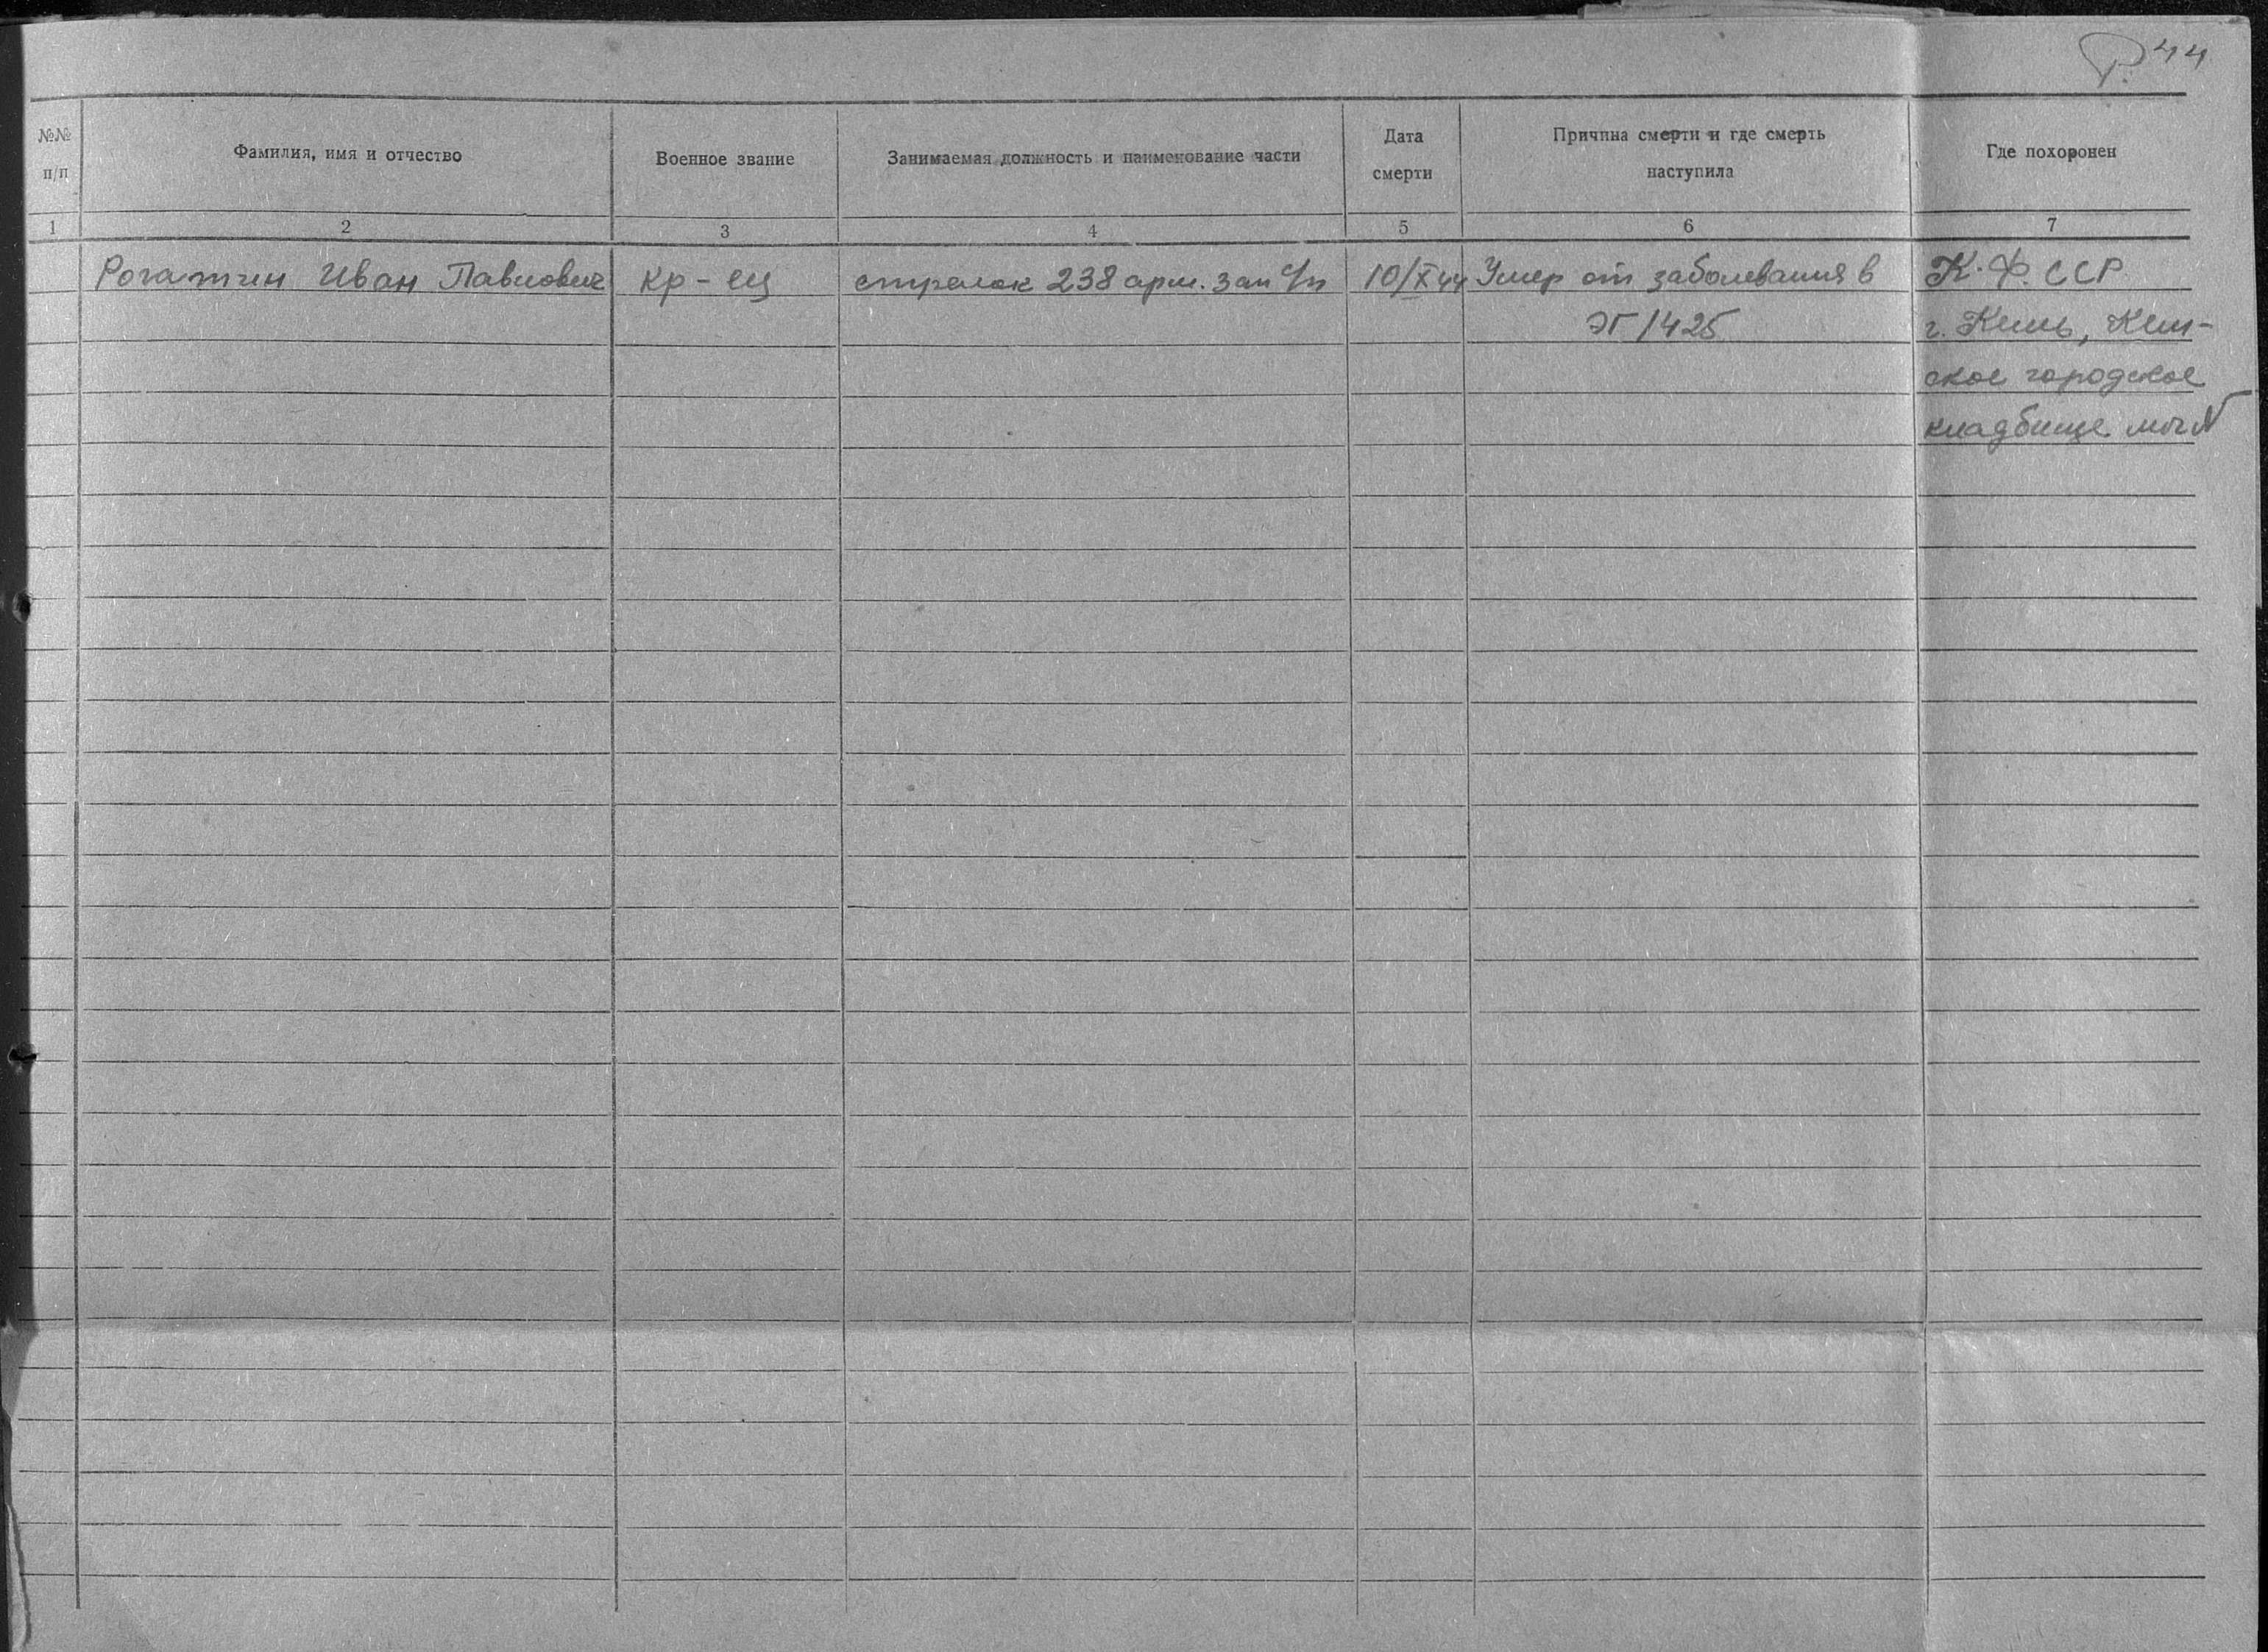 Р. 44
№№ п/п
Фамилия, имя и отчество
Военное звание
Занимаемая должность и наименование части
Дата смерти
Причина смерти и где смерть наступила
Где похоронен
1 2 3 4 5 6 7
Рогатин Иван Павлович кр-ец стрелок 238 арм. зап с/п 10/X 44 Умер от заболевания в К.Ф.ССР
ЭГ 1425 г. Кемь, Кем-
ское городское
кладбище мог N